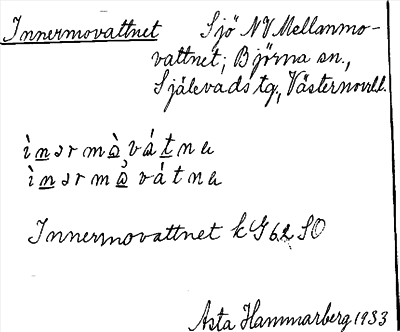 Innermovattnet Sjö NV Mellanmo-
vattnet; Björna sn.,
Själevads tg., Västernorrl.
ìnərmὰvátna
ìnərmὰvátna
Innermovattnet kG62SO
Asta Hammarberg 1933